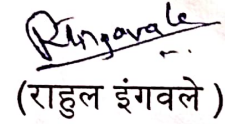 RIngavale
(राहुल इंगवले )